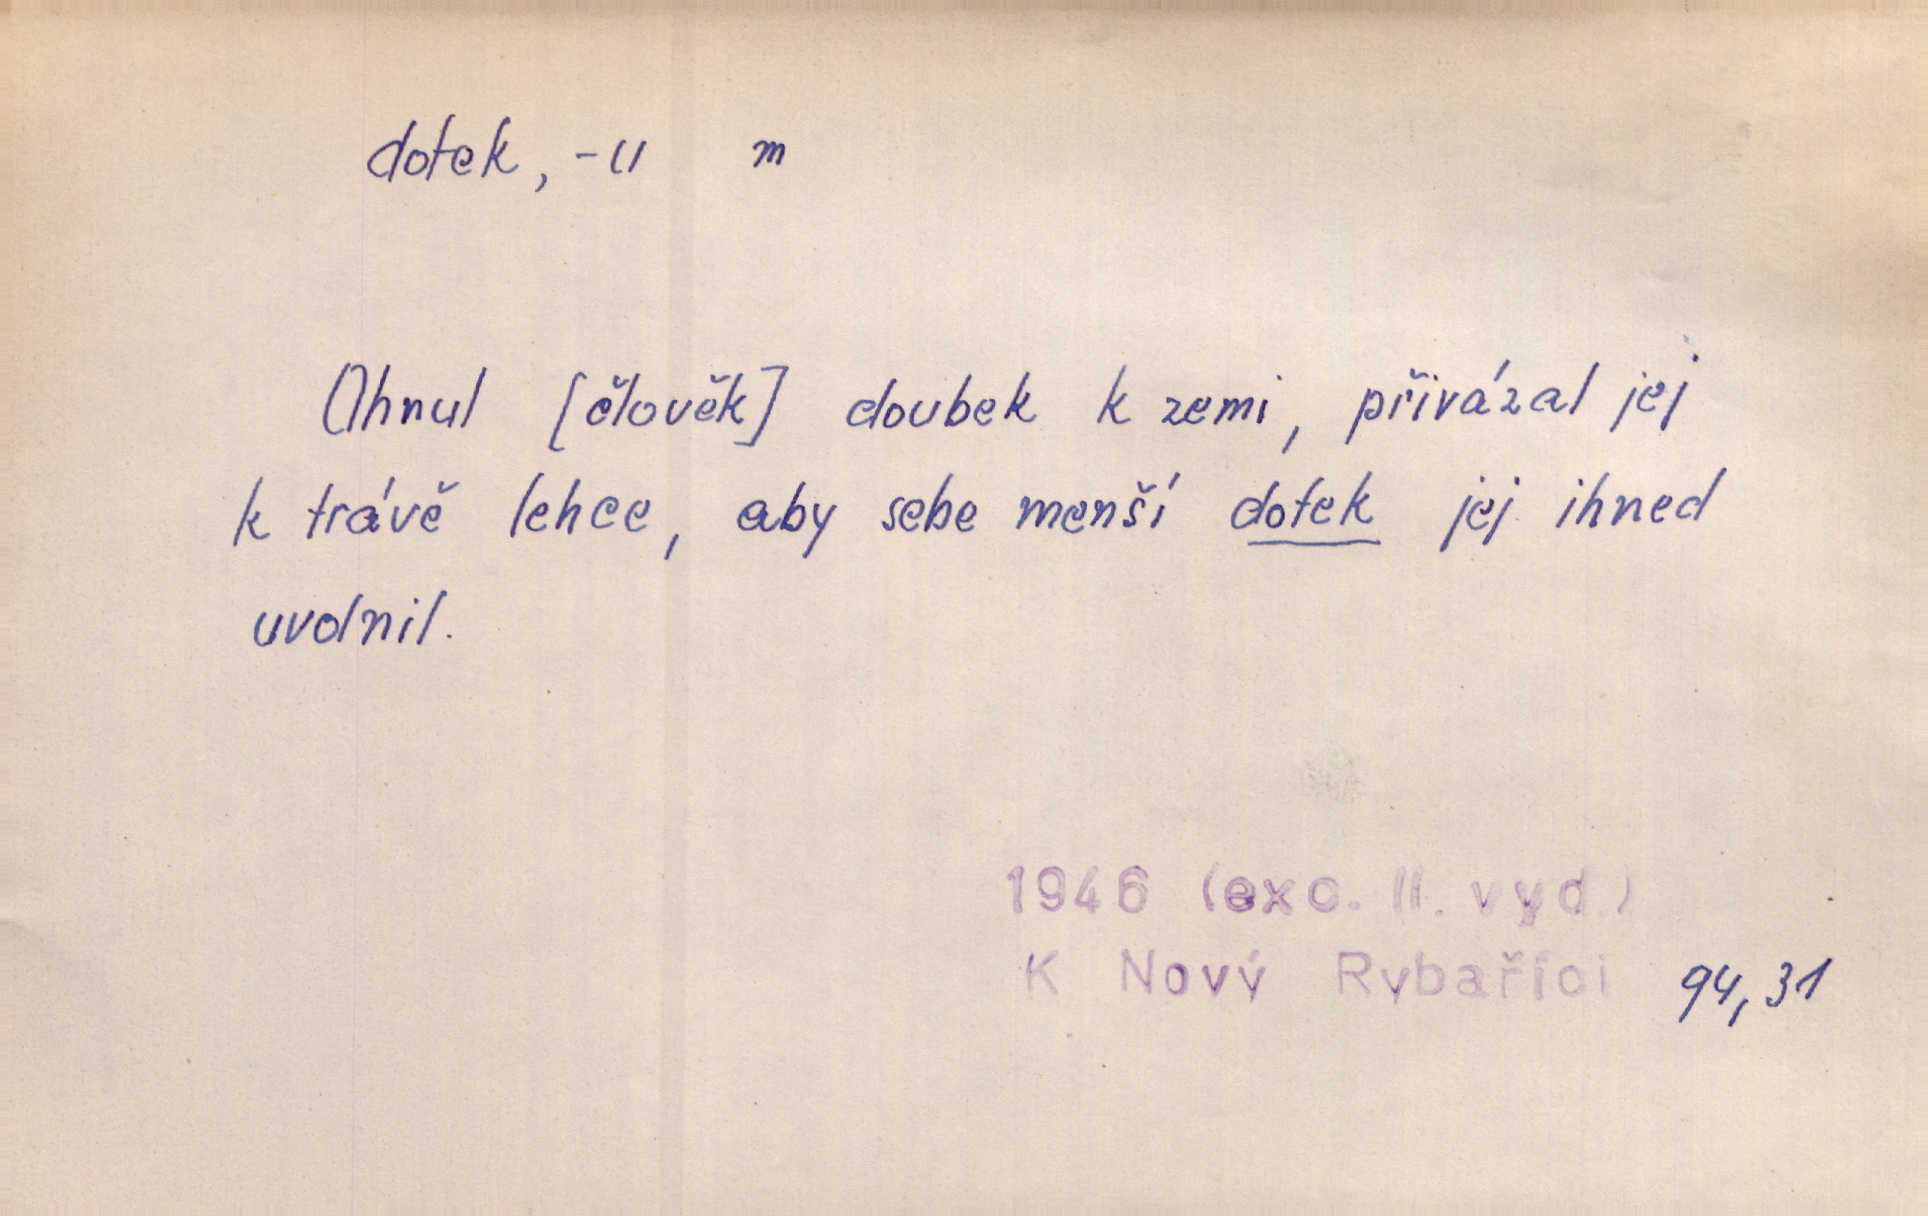 dotek, -u m
Ohnul [člověk] doubek k zemi, přivázal jej
k trávě lehce, aby sebe menší dotek jej ihned
uvolnil.
1946 (exc. II. vyd.)
K Nový Rybaříci 94,31